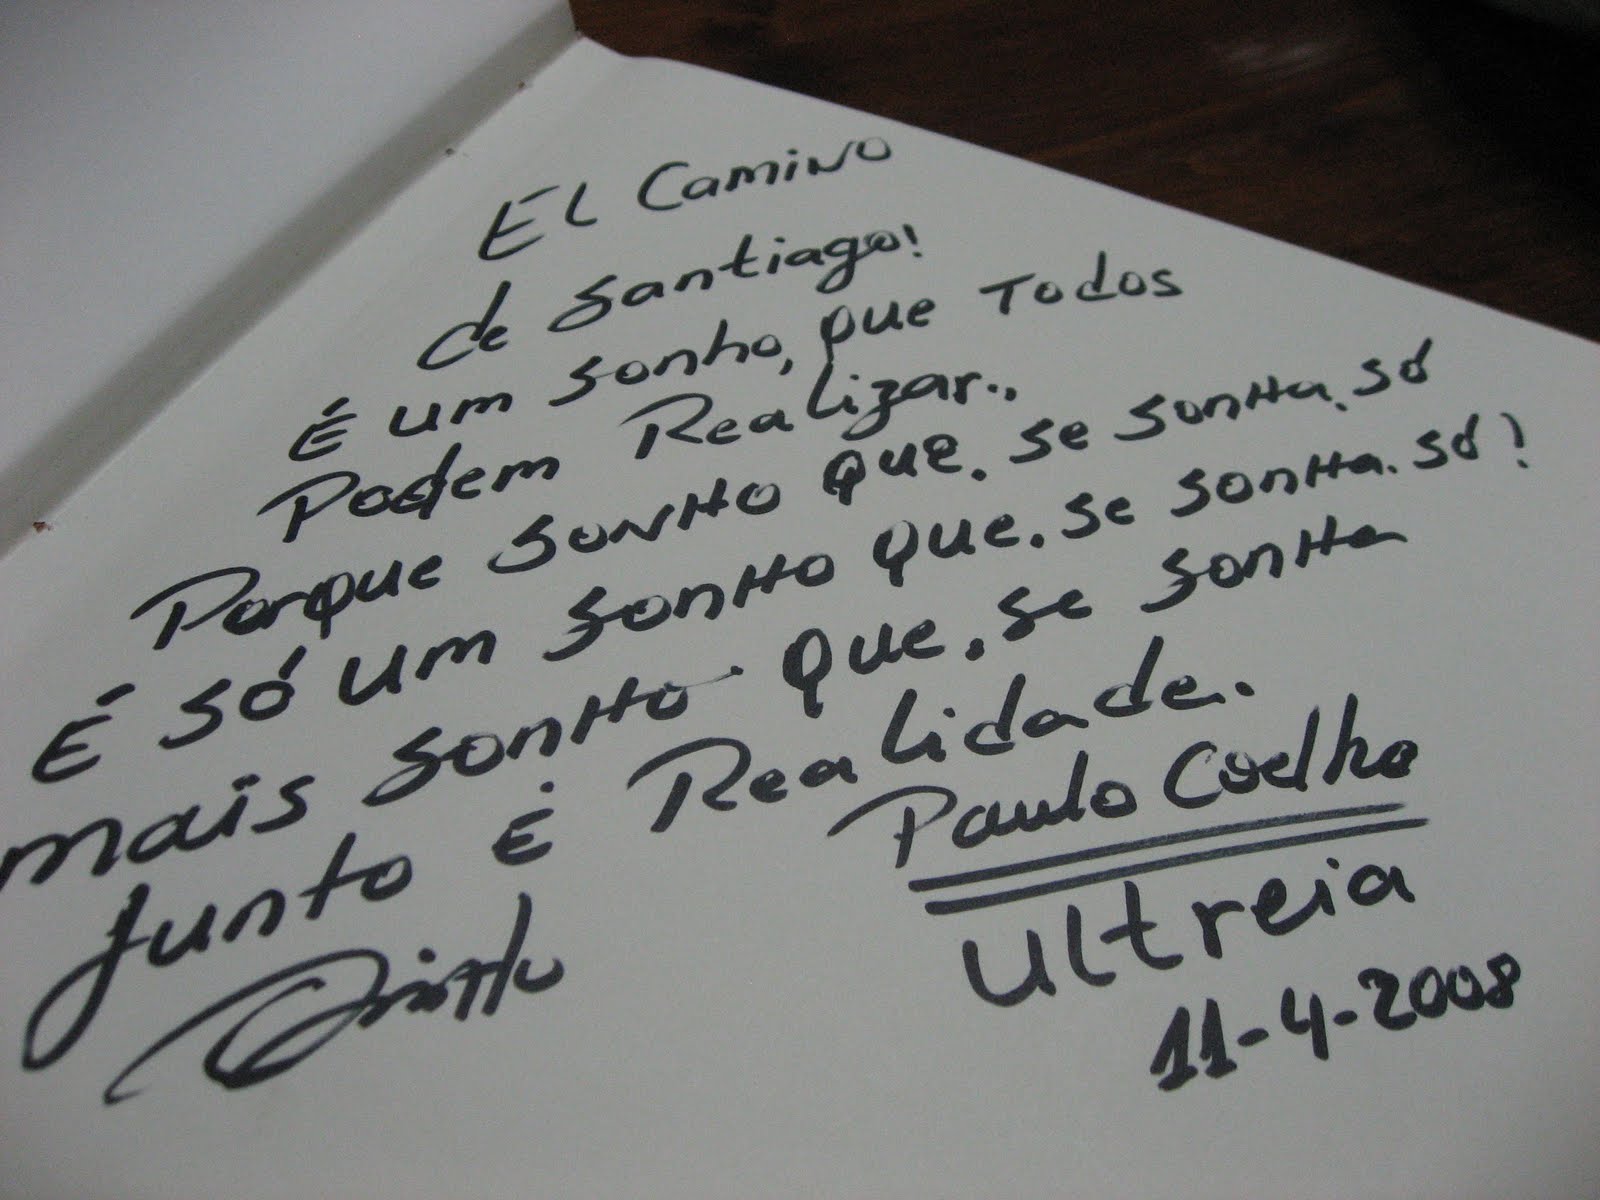 El Camino
de Santiago!
É um sonho, que Todos
Podem Realizar..
Porque sonho que. se sonha. só
É só um sonho que. se sonha. só!
mais sonho que. se sonha
Junto É Realidade.
Paulo Coelho
ultreia
11-4-2008